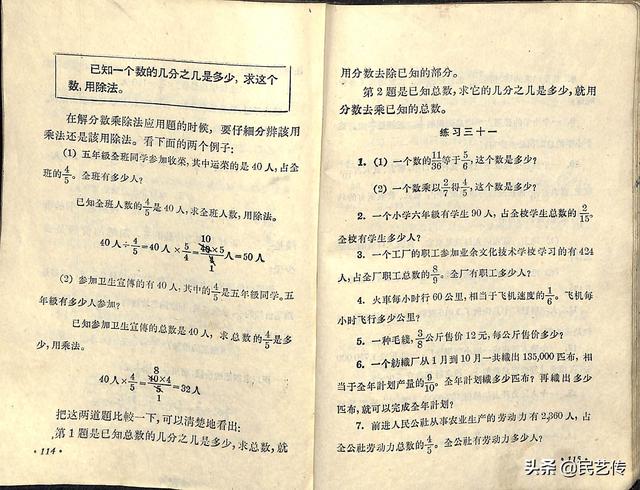 已知一个数的几分之几是多少，求这个
数，用除法。
在解分数乘除法应用题的时候，要仔細分辨該用
乘法还是該用除法。看下面的两个例子：
(1) 五年級全班同学参加收菜，其中运菜的是40人，占全
班的4/5。全班有多少人？
已知全班人数的4/5是40人，求全班人数，用除法。
40人÷4/5=40人×5/4=40×5/4=50人
10
1
(2) 参加卫生宣傳的有40人，其中的4/5是五年級同学。五
年級有多少人参加？
已知参加卫生宣傳的总数是40人，求总数的4/5是多
少，用乘法。
40人×4/5=40×4/5=32人
8
1
把这两道題比較一下，可以清楚地看出：
第1題是已知总数的几分之几是多少，求总数，就
·114·
用分数去除已知的部分。
第2題是已知总数，求它的几分之几是多少，就用
分数去乘已知的总数。
练习三十一
1. (1) 一个数的11/36等于5/6，这个数是多少？
(2) 一个数乘以2/7得4/5，这个数是多少？
2. 一个小学六年級有学生90人，占全校学生总数的2/15。
全校有学生多少人？
3. 一个工厂的职工参加业余文化技术学校学习的有424
人，占全厂职工总数的8/9。全厂有职工多少人？
4. 火車每小时行60公里，相当于飞机速度的1/6。飞机每
小时飞行多少公里？
5. 一种毛綫，3/8公斤售价12元，每公斤售价多少？
6. 一个紡織厂从1月到10月一共織出135,000匹布，相
当于全年計划产量的9/10。全年計划織多少匹布？再織出多少
匹布，就可以完成全年計划？
7. 前进人民公社从事农业生产的劳动力有2,360人，占
全公社劳动力总数的4/5。全公社有劳动力多少人？
·115·
头条 @民艺传